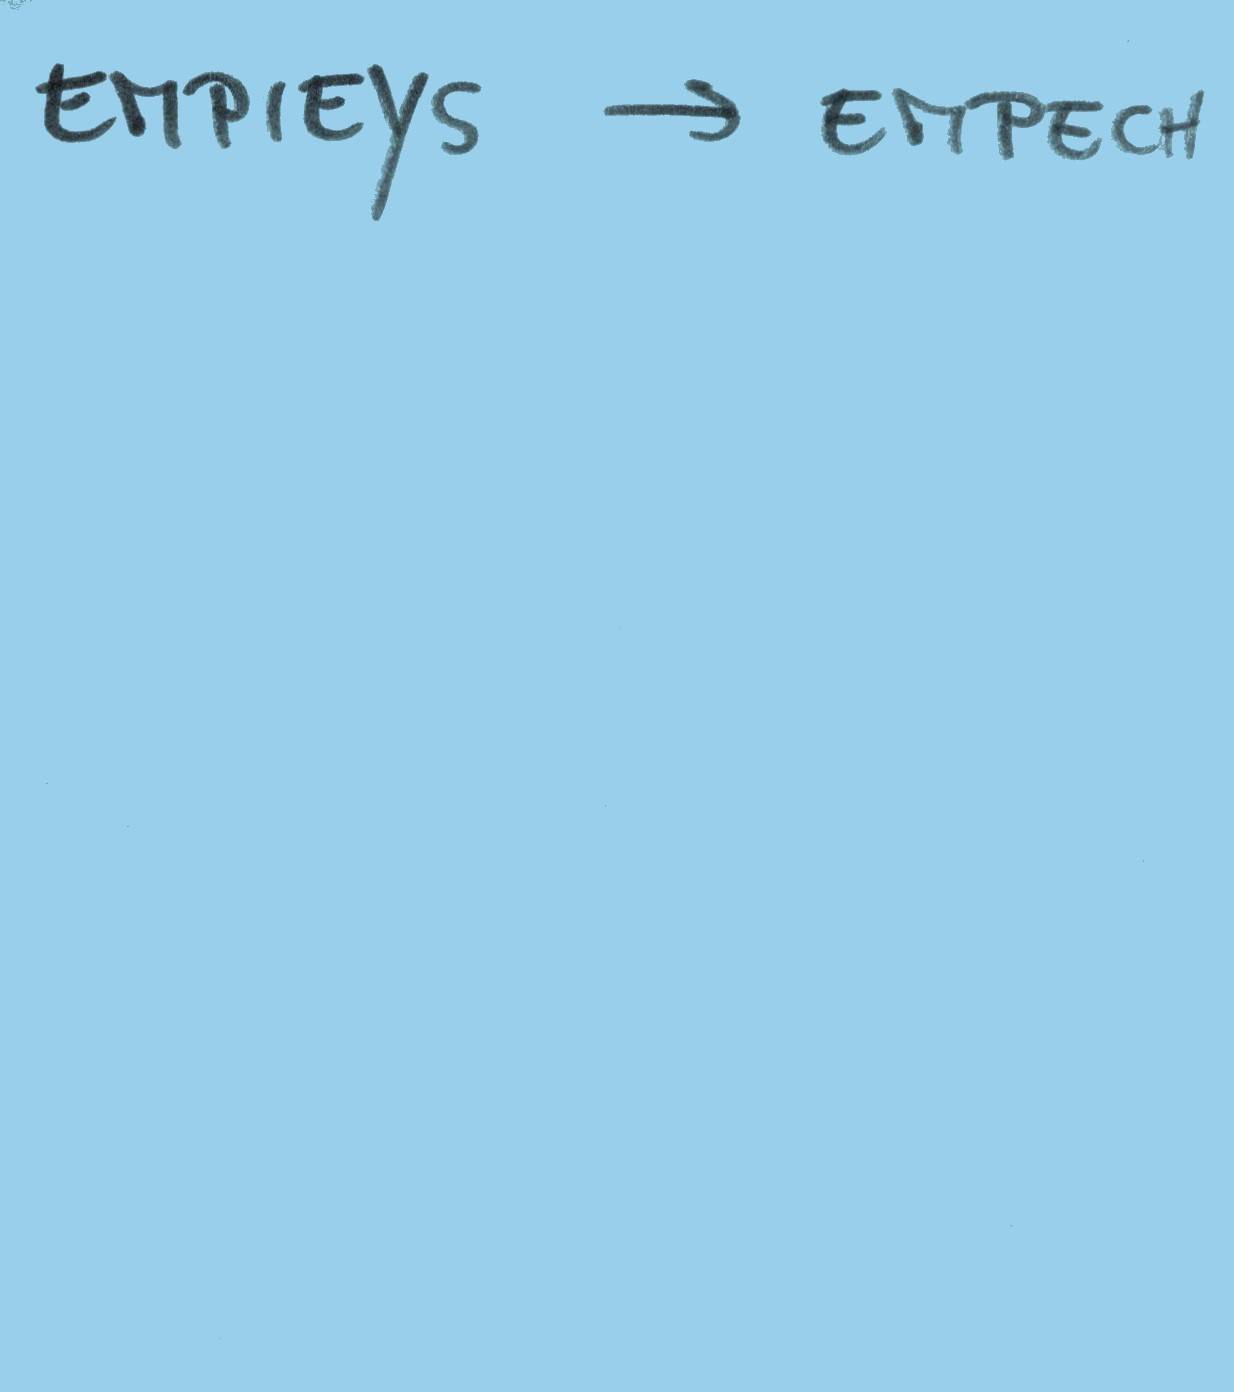 EMPIEYS → EMPECH